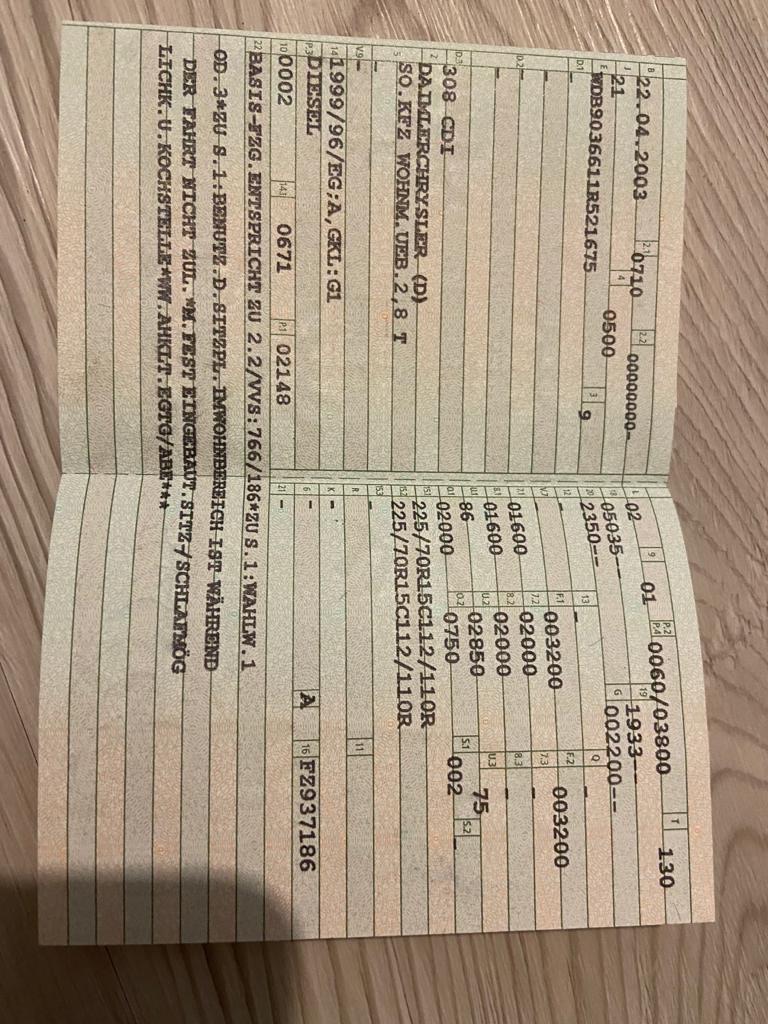 B 22.04.2003 2.1 0710 2.2 00000000-
J 21 4 0500
E WDB9036611R521675 3 9
D.1 -
-
D.2 -
-
-
D.3 308 CDI
2 DAIMLERCHRYSLER (D)
5 SO.KFZ WOHNM.UEB.2,8 T
-
V.9 -
14 1999/96/EG;A,GKL:G1
P.3 DIESEL
10 0002 14.1 0671 P.1 02148
22 BASIS-FZG.ENTSPRICHT ZU 2.2/VVS:766/186*ZU S.1:WAHLW.1
OD.3*ZU S.1:BENUTZ.D.SITZPL.IMWOHNBEREICH IST WÄHREND
DER FAHRT NICHT ZUL.*M.FEST EINGEBAUT.SITZ-/SCHLAFMÖG
LICHK.U.KOCHSTELLE*WW.AHKLT.EGTG/ABE***
L 02 9 01 P.2 P.4 0060/03800 T 130
18 05035-- 19 1933--
20 2350-- G 002200--
12 - 13 - Q -
V.7 - F.1 003200 F.2 003200
7.1 01600 7.2 02000 7.3 -
8.1 01600 8.2 02000 8.3 -
U.1 86 U.2 02850 U.3 75
O.1 02000 O.2 0750 S.1 002 S.2 -
15.1 225/70R15C112/110R
15.2 225/70R15C112/110R
15.3 -
R - 11
K -
6 - A 16 FZ937186
21 -